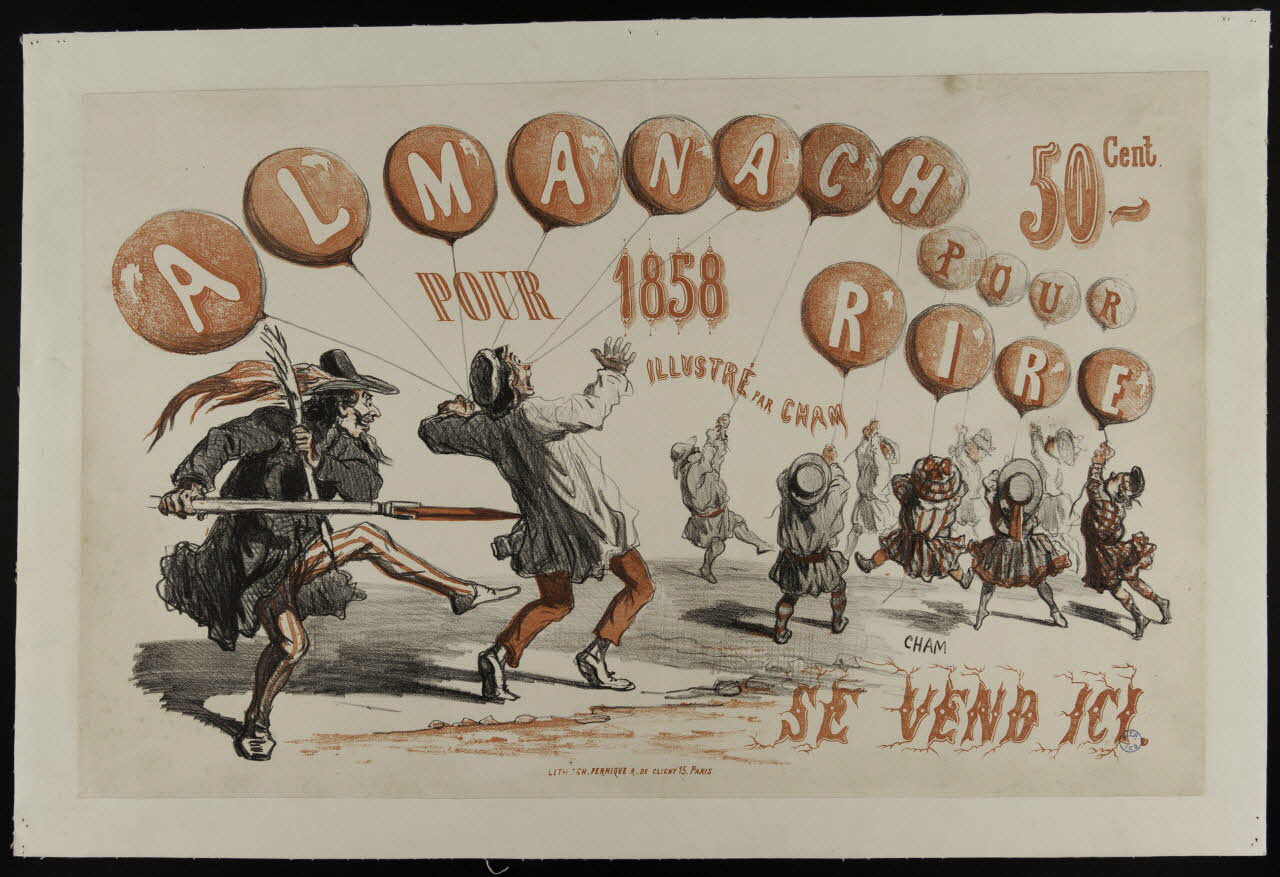 ALMANACH
POUR
RIRE
50 Cent.
POUR 1858
ILLUSTRÉ PAR CHAM
CHAM
SE VEND ICI.
LITH: CH. PERNIQUE R. DE CLICHY 15. PARIS